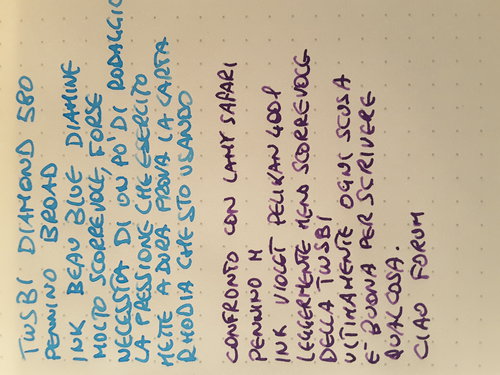 TWSBI DIAMOND 580
PENNINO BROAD
INK BEAU BLUE DIAMINE
MOLTO SCORREVOLE, FORSE
NECESSITA DI UN PO' DI RODAGGIO
LA PRESSIONE CHE ESERCITO
METTE A DURA PROVA LA CARTA
RHODIA CHE STO USANDO
CONFRONTO CON LAMY SAFARI
PENNINO M
INK VIOLET PELIKAN 4001
LEGGERMENTE MENO SCORREVOLE
DELLA TWSBI
ULTIMAMENTE OGNI SCUSA
E' BUONA PER SCRIVERE
QUALCOSA.
CIAO FORUM